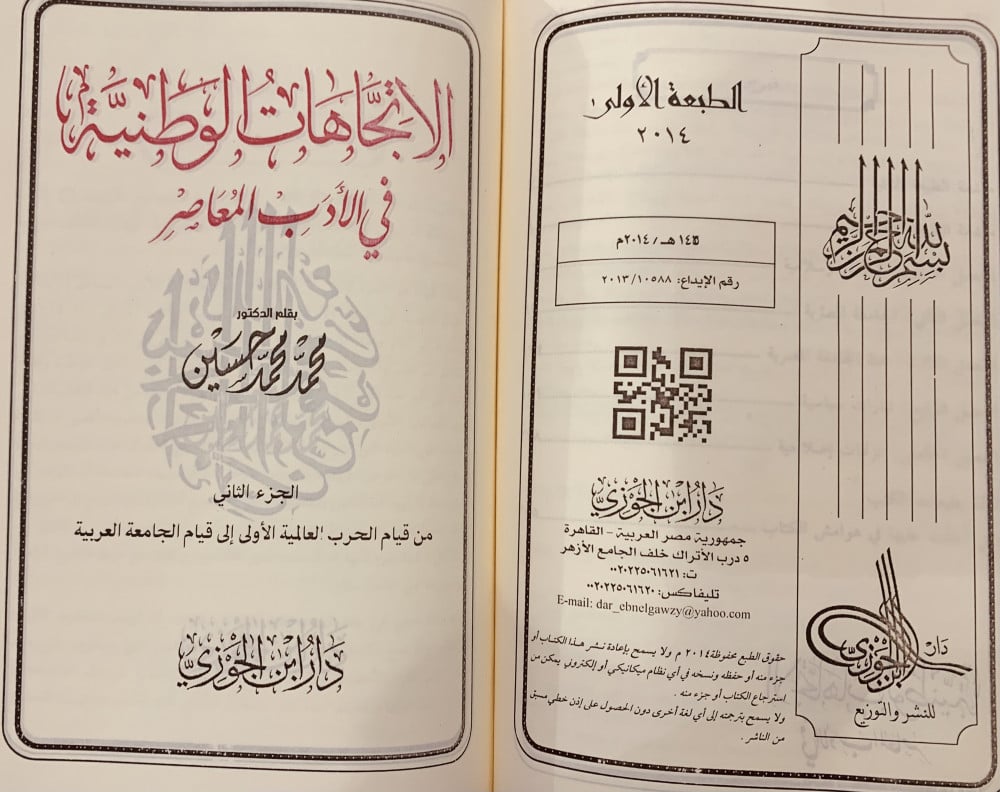 الطبعة الأولى
٢٠١٤
هـ/٢٠١٤م
رقم الإيداع: ٢٠١٣/١٠٥٨٨
دار ابن الجوزي
جمهورية مصر العربية - القاهرة
٥ درب الأتراك خلف الجامع الأزهر
ت: ٠٠٢٠٢٢٥٠٦١٦٢١
تليفاكس: ٠٠٢٠٢٢٥٠٦١٦٢٠
E-mail: dar_ebnelgawzy@yahoo.com
حقوق الطبع محفوظة ٢٠١٤ م ولا يسمح بإعادة نشر هذا الكتاب أو
جزء منه أو حفظه ونسخه في أي نظام ميكانيكي أو إلكتروني يمكن من
استرجاع الكتاب أو جزء منه .
ولا يسمح بترجمته إلى أي لغة أخرى دون الحصول على إذن خطي مسبق
من الناشر .
بسم الله الرحمن الرحيم
دار
ابن الجوزي
للنشر والتوزيع
الاتجَّاهَاتُ الوَطَنيَّة
في الأَدَبِ المُعَاصِرِ
بقلم الدكتور
محمَّد محمَّد حسَين
الجزء الثاني
من قيام الحرب العالمية الأولى إلى قيام الجامعة العربية
دَارُ ابْنِ الجَوْزِيِّ